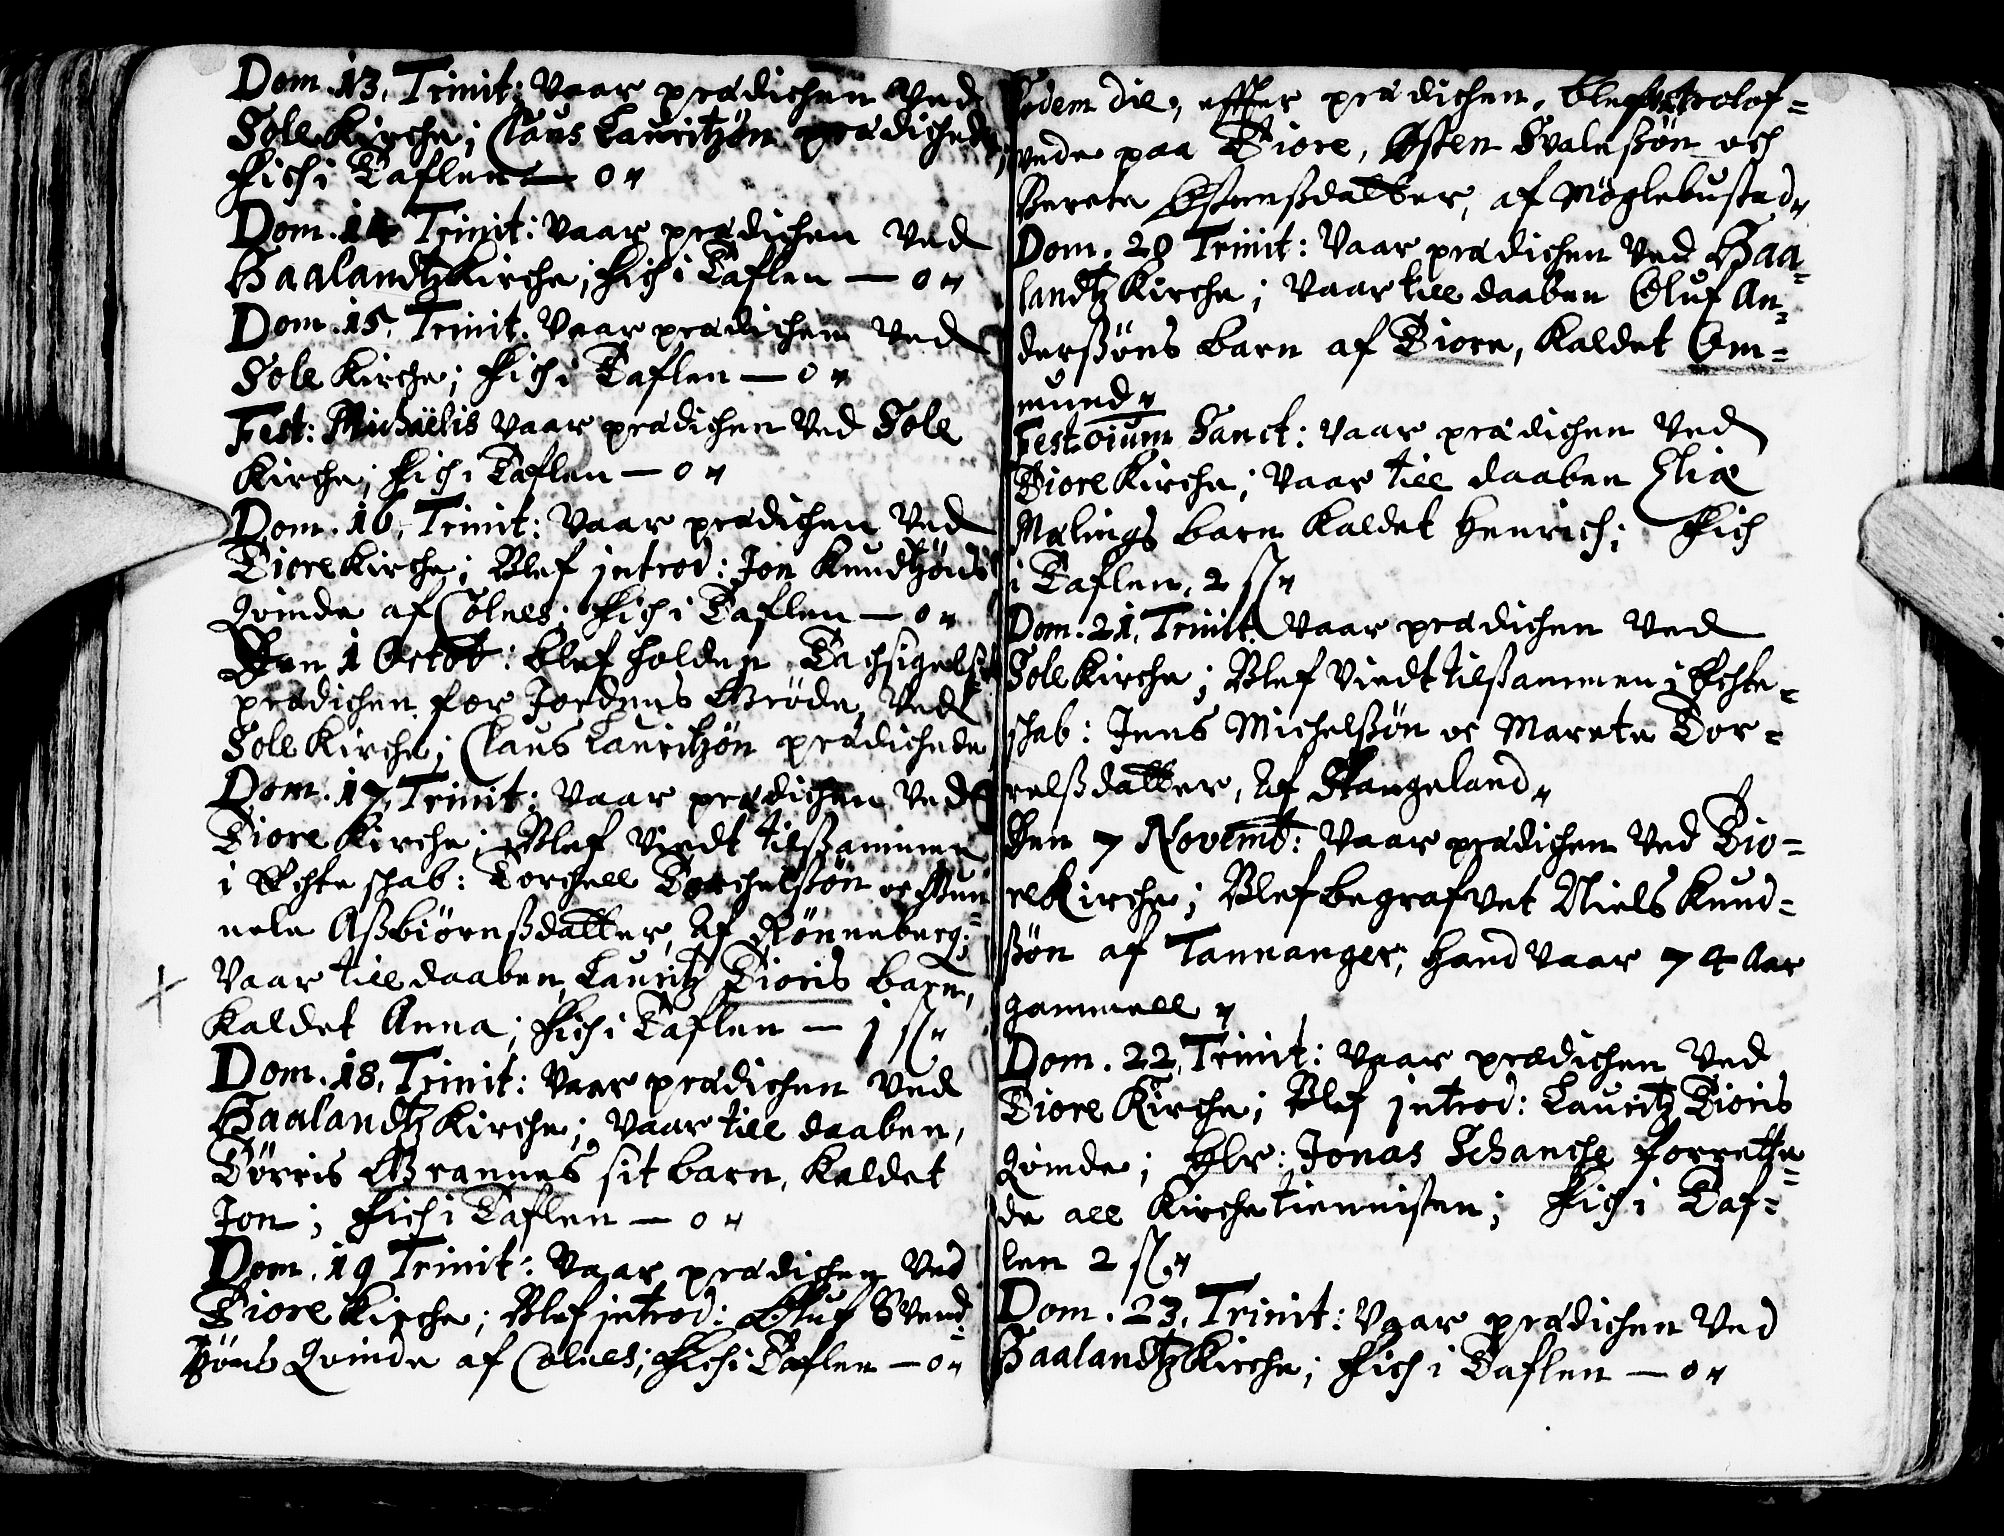 Dom. 13. Trinit: vaar prædichen ved
Sole Kirche; Claus Lauritzøn prædichede;
fich i Taflen — 0 „
Dom. 14 Trinit: vaar prædichen ved
Haalandtz Kirche; fich i Taflen — 0 „
Dom. 15. Trinit. vaar prædichen ved
Sole Kirche; fich i Taflen — 0 „
Fest: Michaëlis vaar prædichen ved Sole
Kirche; fich i Taflen — 0 „
Dom. 16. Trinit: vaar prædichen ved
Tiore Kirche; Blef introd: Jon Knudtzøns
Qvinde af Colnes; fich i Taflen — 0 „
Den 1 Octob: blef holden Tachsigelse
prædichen for Jordens Grøde, ved
Sole Kirche; Claus Lauritzøn prædichede
Dom. 17. Trinit: vaar prædichen ved
Tiore Kirche; Blef viedt tilßammen
i Echteschab: Torchell Torchelßøn oc Gun=
nele Aßbiørnßdatter, af Rønneberg;
vaar till daaben, Lauritz Tioris barn,
kaldet Anna; fich i Taflen — 1 sl „
Dom. 18. Trinit: vaar prædichen ved
Haalandtz Kirche; vaar till daaben,
Tørris Grannes sit barn, kaldet
Jon; fich i Taflen — 0 „
Dom. 19 Trinit: vaar prædichen ved
Tiore Kirche; Blef introd: Oluf Svend=
tzøns Qvinde af Colnes; fich i Taflen — 0 „
Eodem die, effter prædichen, blef trolof=
vede paa Tiore, Østen Svaleßøn och
Berete Østensßdatter, af Møglebustad „
Dom. 20 Trinit: vaar prædichen ved Haa=
landtz Kirche; vaar till daaben Oluf An=
derßøns barn af Tiore, kaldet Om=
mund „
Fest. oium Sanct: vaar prædichen ved
Tiore Kirche; vaar till daaben Eliæ
Malings barn kaldet Henrich; fich
i Taflen, 2 sl „
Dom. 21. Trinit. vaar prædichen ved
Sole Kirche; Blef viedt tilßammen i Echte=
schab: Jens Michelßøn oc Marete Tor=
relßdatter, af Stangeland „
Den 7 Novemb: vaar prædichen ved Tio=
re Kirche; Blef begrafvet Niels Knud=
ßøn af Tannanger, hand vaar 74 Aar
gammell „
Dom. 22. Trinit: vaar prædichen ved
Tiore Kirche; Blef introd: Lauritz Tioris
Qvinde; Hlr: Jonas Schanche forrette=
de all Kirchetiennisten; fich i Taf=
len 2 sl „
Dom. 23. Trinit: vaar prædichen ved
Haalandtz Kirche; fich i Taflen — 0 „